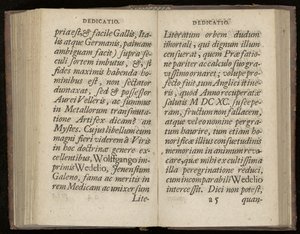 DEDICATIO.
pria est, & facile Gallis, Ita-
lis atque Germanis, palmam
ambiguam facit) supra sæ-
culi sortem imbutus, &, si
fides maximis habenda ho-
minibus est, non sectator
duntaxat, sed & possessor
Aurei Velleris, ac summus
in Metallorum transmuta-
tione Artifex dicam? an
Mystes. Cujus libellum cum
magni fieri viderem à Viris
in hoc doctrinæ genere ex-
cellentibus, Wolffgango im-
primis Wedelio, Jenensium
Galeno, fama ac meritis in
rem Medicam ac universum
Lite-
DEDICATIO.
Literatum orbem dudum
immortali, qui dignum illum
censuerat, quem Præfatio-
ne pariter ac calculo suo gra-
vissimo ornaret; volupe pro-
fecto fuit tum Anglici itine-
ris, quod Anno recuperatæ
salutis MDCXC. suscepe-
ram, fructum non fallacem,
atque veleo nomine perga-
tum haurire, tum etiam ho-
norificæ illius consvetudinis
memoriam in animum revo-
care, quæ mihi ex cultissima
illa peregrinatione reduci,
cum incomparabili Wedelio
intercessit. Dici non potest,
a 5
quan-